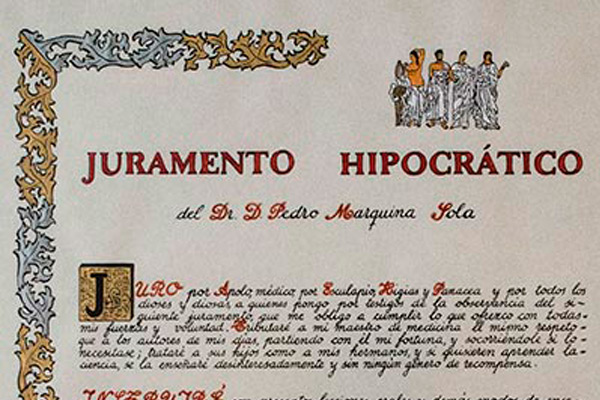 JURAMENTO HIPOCRÁTICO
del Dr. D. Pedro Marquina Sola
JURO por Apolo, médico, por Esculapio, Higias y Panacea y por todos los
dioses y diosas, a quienes pongo por testigos de la observancia del si-
guiente juramento, que me obligo a cumplir lo que ofrezco con todas
mis fuerzas y voluntad. Tributaré a mi maestro de medicina el mismo respeto
que a los autores de mis días, partiendo con él mi fortuna, y socorriéndole si lo
necesitase; trataré a sus hijos como a mis hermanos, y si quisieren aprender la
ciencia, se la enseñaré desinteresadamente y sin ningún género de recompensa.